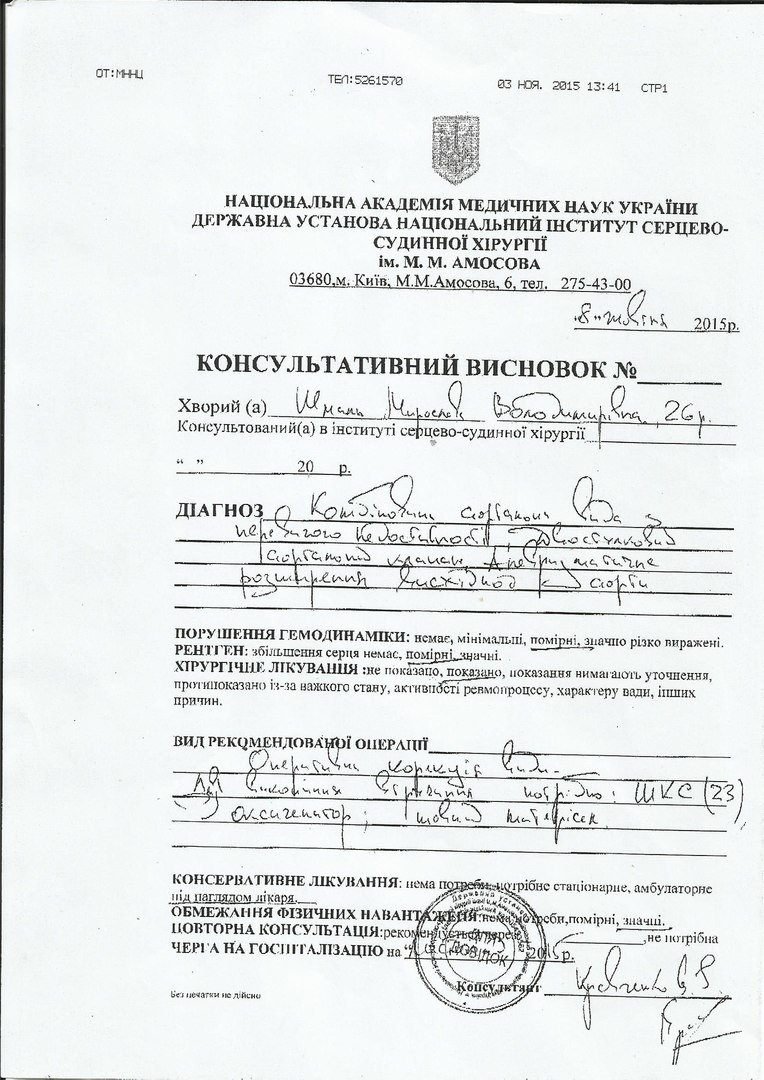 ОТ:МННЦ ТЕЛ:5261570 03 НОЯ. 2015 13:41 СТР1
НАЦІОНАЛЬНА АКАДЕМІЯ МЕДИЧНИХ НАУК УКРАЇНИ
ДЕРЖАВНА УСТАНОВА НАЦІОНАЛЬНИЙ ІНСТИТУТ СЕРЦЕВО-
СУДИННОЇ ХІРУРГІЇ
ім. М. М. АМОСОВА
03680,м. Київ, М.М.Амосова, 6, тел. 275-43-00
"8" жовтня 2015р.
КОНСУЛЬТАТИВНИЙ ВИСНОВОК №
Хворий (а) Мирослава Володимирівна, 26 р.
Консультований(а) в інституті серцево-судинної хірургії
“ ” 20 р.
ДІАГНОЗ Комбінована аортальна вада з
перевагою недостатності, Двостулковий
аортальний клапан, Аневризматичне
розширення висхідної аорти
ПОРУШЕННЯ ГЕМОДИНАМІКИ: немає, мінімальні, помірні, значно різко виражені.
РЕНТГЕН: збільшення серця немає, помірні, значні.
ХІРУРГІЧНЕ ЛІКУВАННЯ :не показано, показано, показання вимагають уточнення,
протипоказано із-за важкого стану, активності ревмопроцесу, характеру вади, інших
причин.
ВИД РЕКОМЕНДОВАНОЇ ОПЕРАЦІЇ
Оперативна корекція вади.
Для виконання втручання потрібно: ШКС (23)
Оксигенатор; шовний матеріал.
КОНСЕРВАТИВНЕ ЛІКУВАННЯ: нема потреби, потрібне стаціонарне, амбулаторне
під наглядом лікаря.
ОБМЕЖАННЯ ФІЗИЧНИХ НАВАНТАЖЕНЯ:нема потреби,помірні, значні.
ПОВТОРНА КОНСУЛЬТАЦІЯ:рекомендується через ,не потрібна
ЧЕРГА НА ГОСПІТАЛІЗАЦІЮ на 2015р.
ДЛЯ ДОВІДОК
Консультант Кравченко В.
Без печатки не дійсно